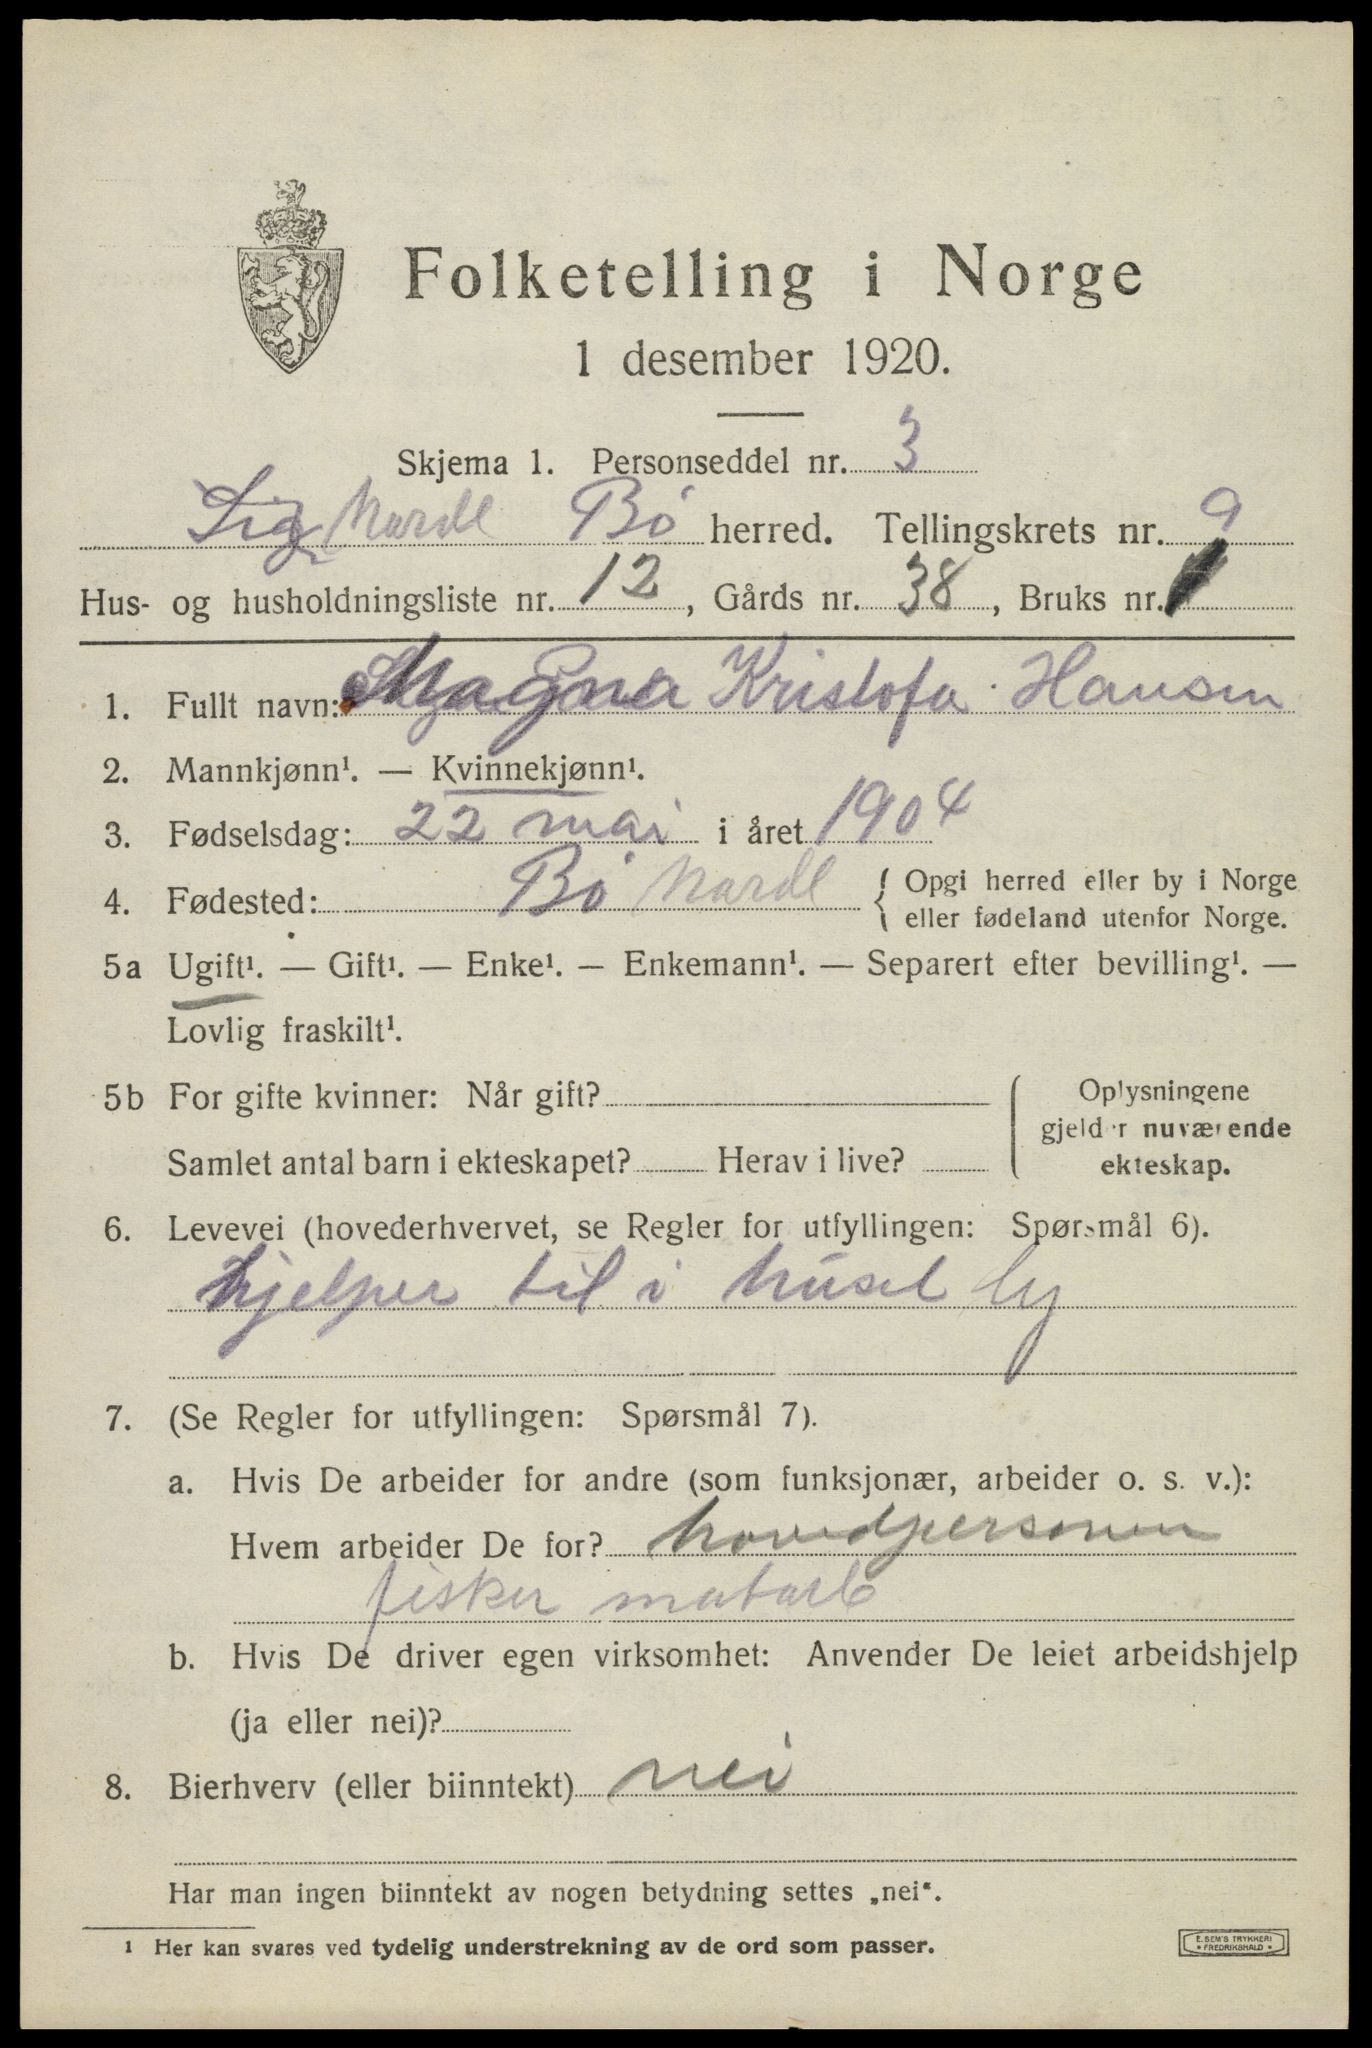 Folketelling i Norge
1 desember 1920.
Skjema 1. Personseddel nr. 3
Nordl Bø herred. Tellingskrets nr. 9
Hus- og husholdningsliste nr. 12, Gårds nr. 38, Bruks nr.
1. Fullt navn: Magna Kristofa Hansen
2. Mannkjønn¹. — Kvinnekjønn¹.
3. Fødselsdag: 22 mai i året 1904
4. Fødested: Bø Nordl { Opgi herred eller by i Norge
eller fødeland utenfor Norge.
5a Ugift¹. — Gift¹. — Enke¹. — Enkemann¹. — Separert efter bevilling¹. —
Lovlig fraskilt¹.
5b For gifte kvinner: Når gift?
Samlet antal barn i ekteskapet? Herav i live?
Oplysningene
gjelder nuværende
ekteskap.
6. Levevei (hovederhvervet, se Regler for utfyllingen: Spørsmål 6).
hjelper til i huset
7. (Se Regler for utfyllingen: Spørsmål 7).
a. Hvis De arbeider for andre (som funksjonær, arbeider o. s. v.):
Hvem arbeider De for? hovedpersonen
fisker
b. Hvis De driver egen virksomhet: Anvender De leiet arbeidshjelp
(ja eller nei)?
8. Bierhverv (eller biinntekt) nei
Har man ingen biinntekt av nogen betydning settes „nei“.
1 Her kan svares ved tydelig understrekning av de ord som passer.
E. SEM'S TRYKKERI
* FREDRIKSHALD *